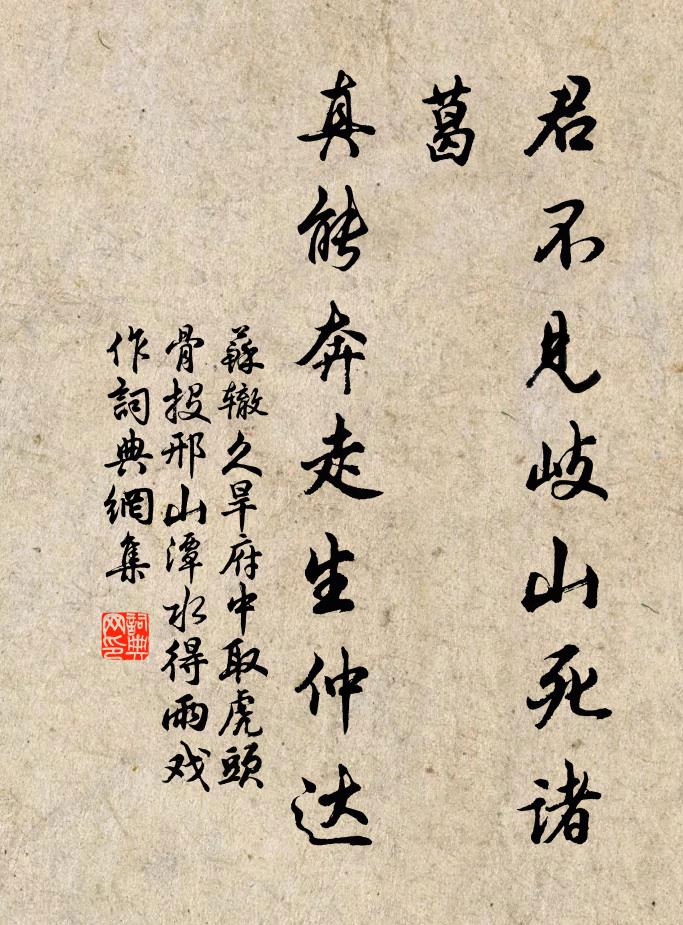 君不见岐山死诸
葛
真能奔走生仲达
蘇辙久旱府中取虎頭
骨投邢山潭水得雨戏
作詞典網集
詞典
网印